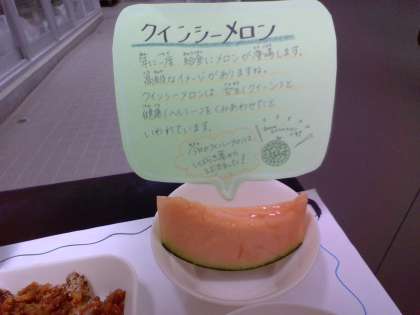 クインシーメロン
年に一度 給食にメロンが登場します。
高級なイメージがありますね。
クインシーメロンは 女王（クイーン）と
健康（ヘルシー）をくみあわせたと
いわれています。
今日のクインシーメロンは